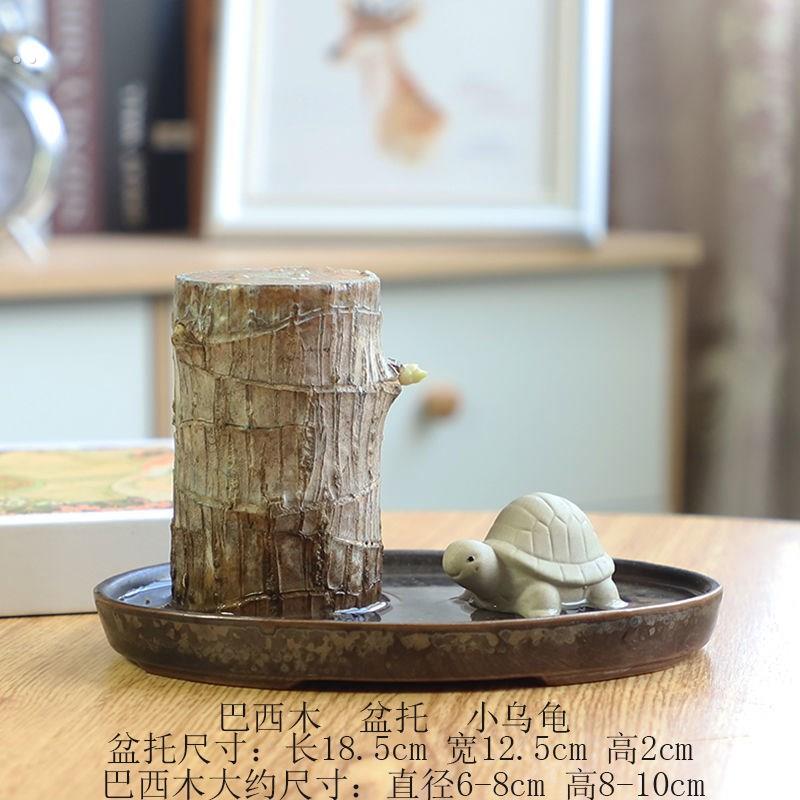 巴西木 盆托 小乌龟
盆托尺寸：长18.5cm 宽12.5cm 高2cm
巴西木大约尺寸：直径6-8cm 高8-10cm